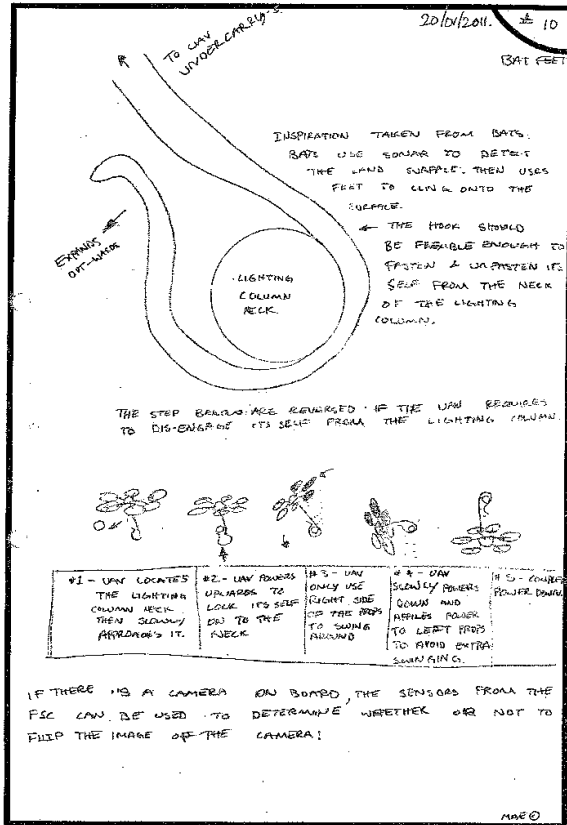 20/01/2011. # 10
BAT FEET
TO UAV
UNDERCARRIGE
INSPIRATION TAKEN FROM BATS.
BATS USE SONAR TO DETECT
THE LAND SURFACE. THEN USES
FEET TO CLING ONTO THE
SURFACE.
← THE HOOK SHOULD
BE FLEXIBLE ENOUGH TO
FASTEN & UNFASTEN ITS
SELF FROM THE NECK
OF THE LIGHTING
COLUMN.
EXPANDS
OUT-WARDS
LIGHTING
COLUMN
NECK
THE STEP BELOW ARE REVERSED IF THE UAV REQUIRES
TO DIS-ENGAGE ITS SELF FROM THE LIGHTING COLUMN.
#1 - UAV LOCATES
THE LIGHTING
COLUMN NECK
THEN SLOWLY
APPROACHES IT.
#2 - UAV POWERS
UPWARDS TO
LOCK ITS SELF
ON TO THE
NECK
#3 - UAV
ONLY USE
RIGHT SIDE
OF THE PROPS
TO SWING
AROUND
#4 - UAV
SLOWLY POWERS
DOWN AND
APPLIES POWER
TO LEFT PROPS
TO AVOID EXTRA
SWINGING.
#5 - COMPLETE
POWER DOWN.
IF THERE IS A CAMERA ON BOARD, THE SENSORS FROM THE
FSC CAN BE USED TO DETERMINE WHETHER OR NOT TO
FLIP THE IMAGE OFF THE CAMERA!
MAE ©